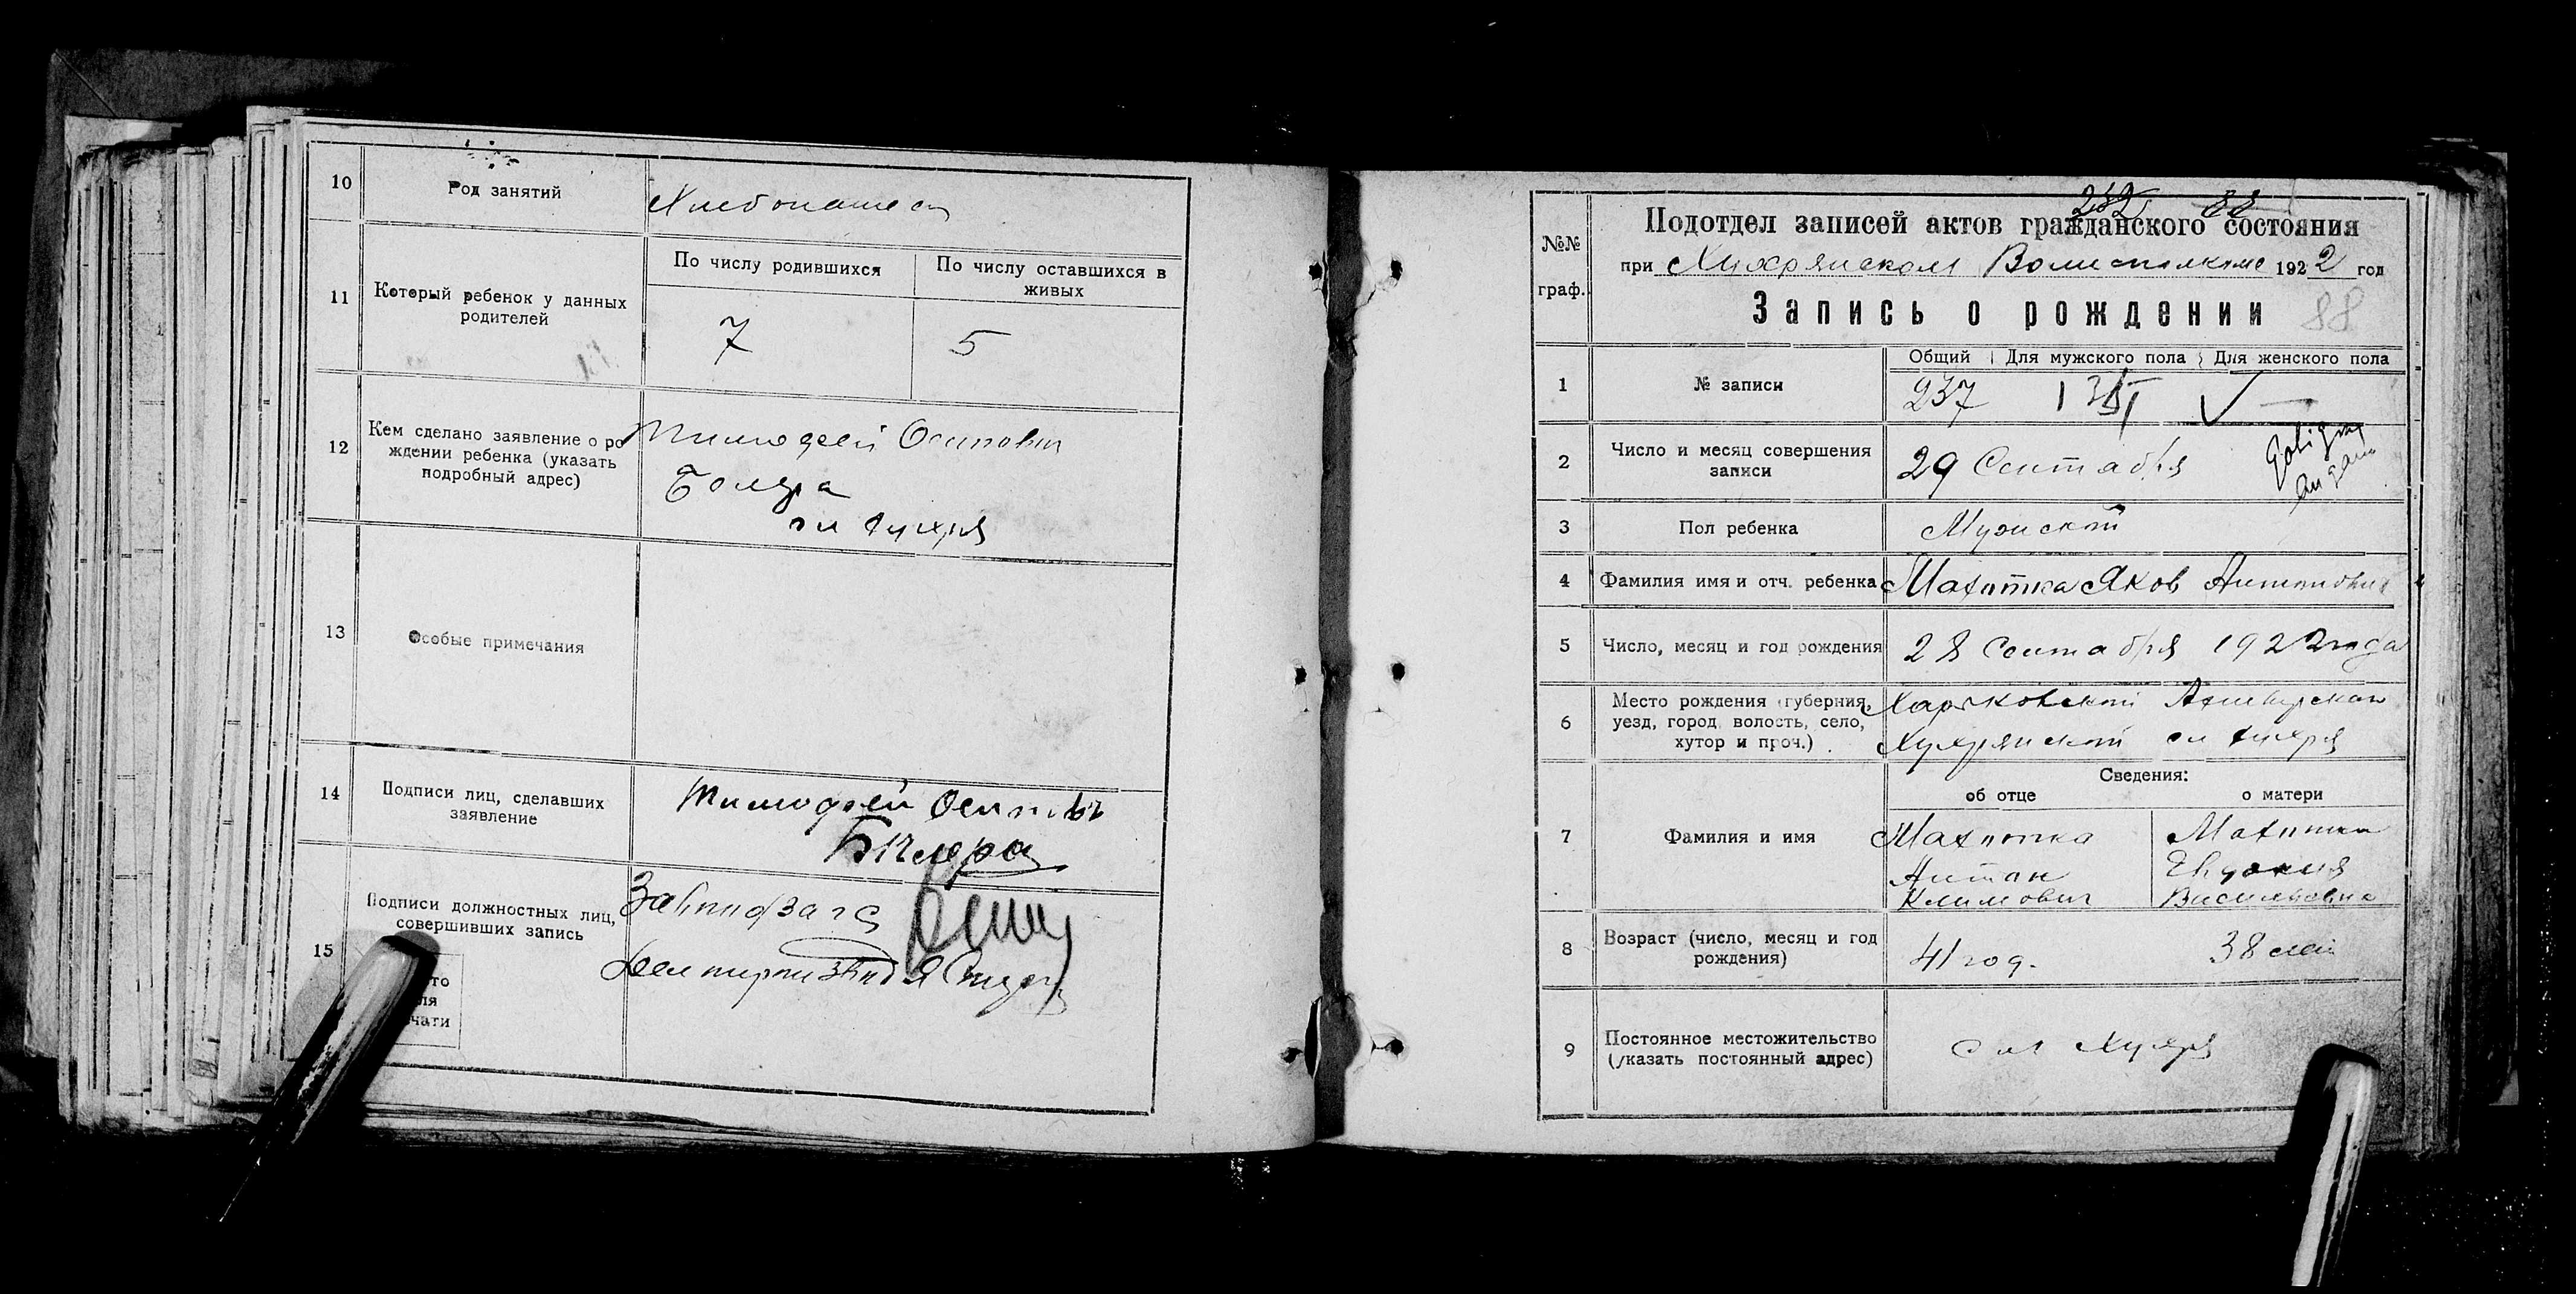 10 Род занятий Хлебопашец
11 Который ребенок у данных родителей
По числу родившихся
По числу оставшихся в живых
7 5
12 Кем сделано заявление о рождении ребенка (указать подробный адрес)
Тимофей Осипович
13 Особые примечания
14 Подписи лиц, сделавших заявление
Тимофей
15 Подписи должностных лиц, совершивших запись
№№ граф.
Подотдел записей актов гражданского состояния
при Хухрянском Волисполкоме 1922 год
Запись о рождении 88
Общий Для мужского пола Для женского пола
1 № записи 237
2 Число и месяц совершения записи 29 Сентября
3 Пол ребенка Мужской
4 Фамилия имя и отч. ребенка Махотка Яков Антонович
5 Число, месяц и год рождения 28 Сентября 1922 года
6 Место рождения (губерния, уезд, город, волость, село, хутор и проч.)
Харьковской Ахтырской
Хухрянской сл Хухря
Сведения:
об отце о матери
7 Фамилия и имя
Махотка Махотка
Антон Евдокия
Климович Васильевна
8 Возраст (число, месяц и год рождения) 41 год. 38 лет
9 Постоянное местожительство (указать постоянный адрес) сл Хухря